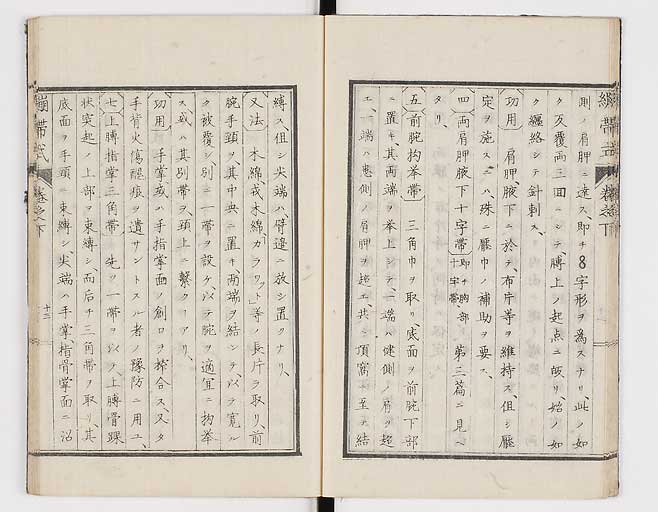 繃帯式 巻之下
側ノ肩胛ニ達ス即チ8字形ヲ為スナリ、此ノ如
ク反覆両三回ニシテ、膊上ノ起点ニ皈リ、始ノ如
ク纏絡シテ針刺ス、
功用 肩胛腋下ニ於テ、布片等ヲ維持ス、但シ壓
定ヲ施スニハ、殊ニ壓巾ノ補助ヲ要ス、
四両肩胛腋下十字帯 即チ胸部十字帯 第三篇ニ見ヘ
タリ、
五前腕拘挙帯 三角巾ヲ取リ、底面ヲ前腕下部
ニ置キ、其両端ヲ挙上シテ、一端ハ健側ノ肩ヲ超
エ、一端ハ患側ノ肩胛ヲ超エ、共ニ項窩ニ至テ結
縛ス、但シ尖端ハ、臂邊ニ放シ置クナリ、
又法 木綿或木綿「ガラワフト」等ノ長片ヲ取リ、前
腕手頸ヲ、其中央ニ置キ、両端ヲ結ンテ、以テ寛ル
ク被覆シ、別ニ一帯ヲ設ケ、以テ腕ヲ適宜ニ拘挙
ス、或ハ其別帯ヲ、頸上ニ繋クコアリ、
功用 手掌或ハ手指掌面ノ創口ヲ搾合ス、又タ
手背火傷醒痕ヲ遺サントスル者ノ豫防ニ用ユ、
七上膊指掌三角帯 先ツ一帯ヲ以テ、上膊骨踝
状突起ノ上部ヲ束縛シ、而后チ三角帯ヲ取リ、其
底面ヲ手頸ニ束縛シ、尖端ハ手掌、指骨掌面ニ沿
繃帯式 巻之下
十三